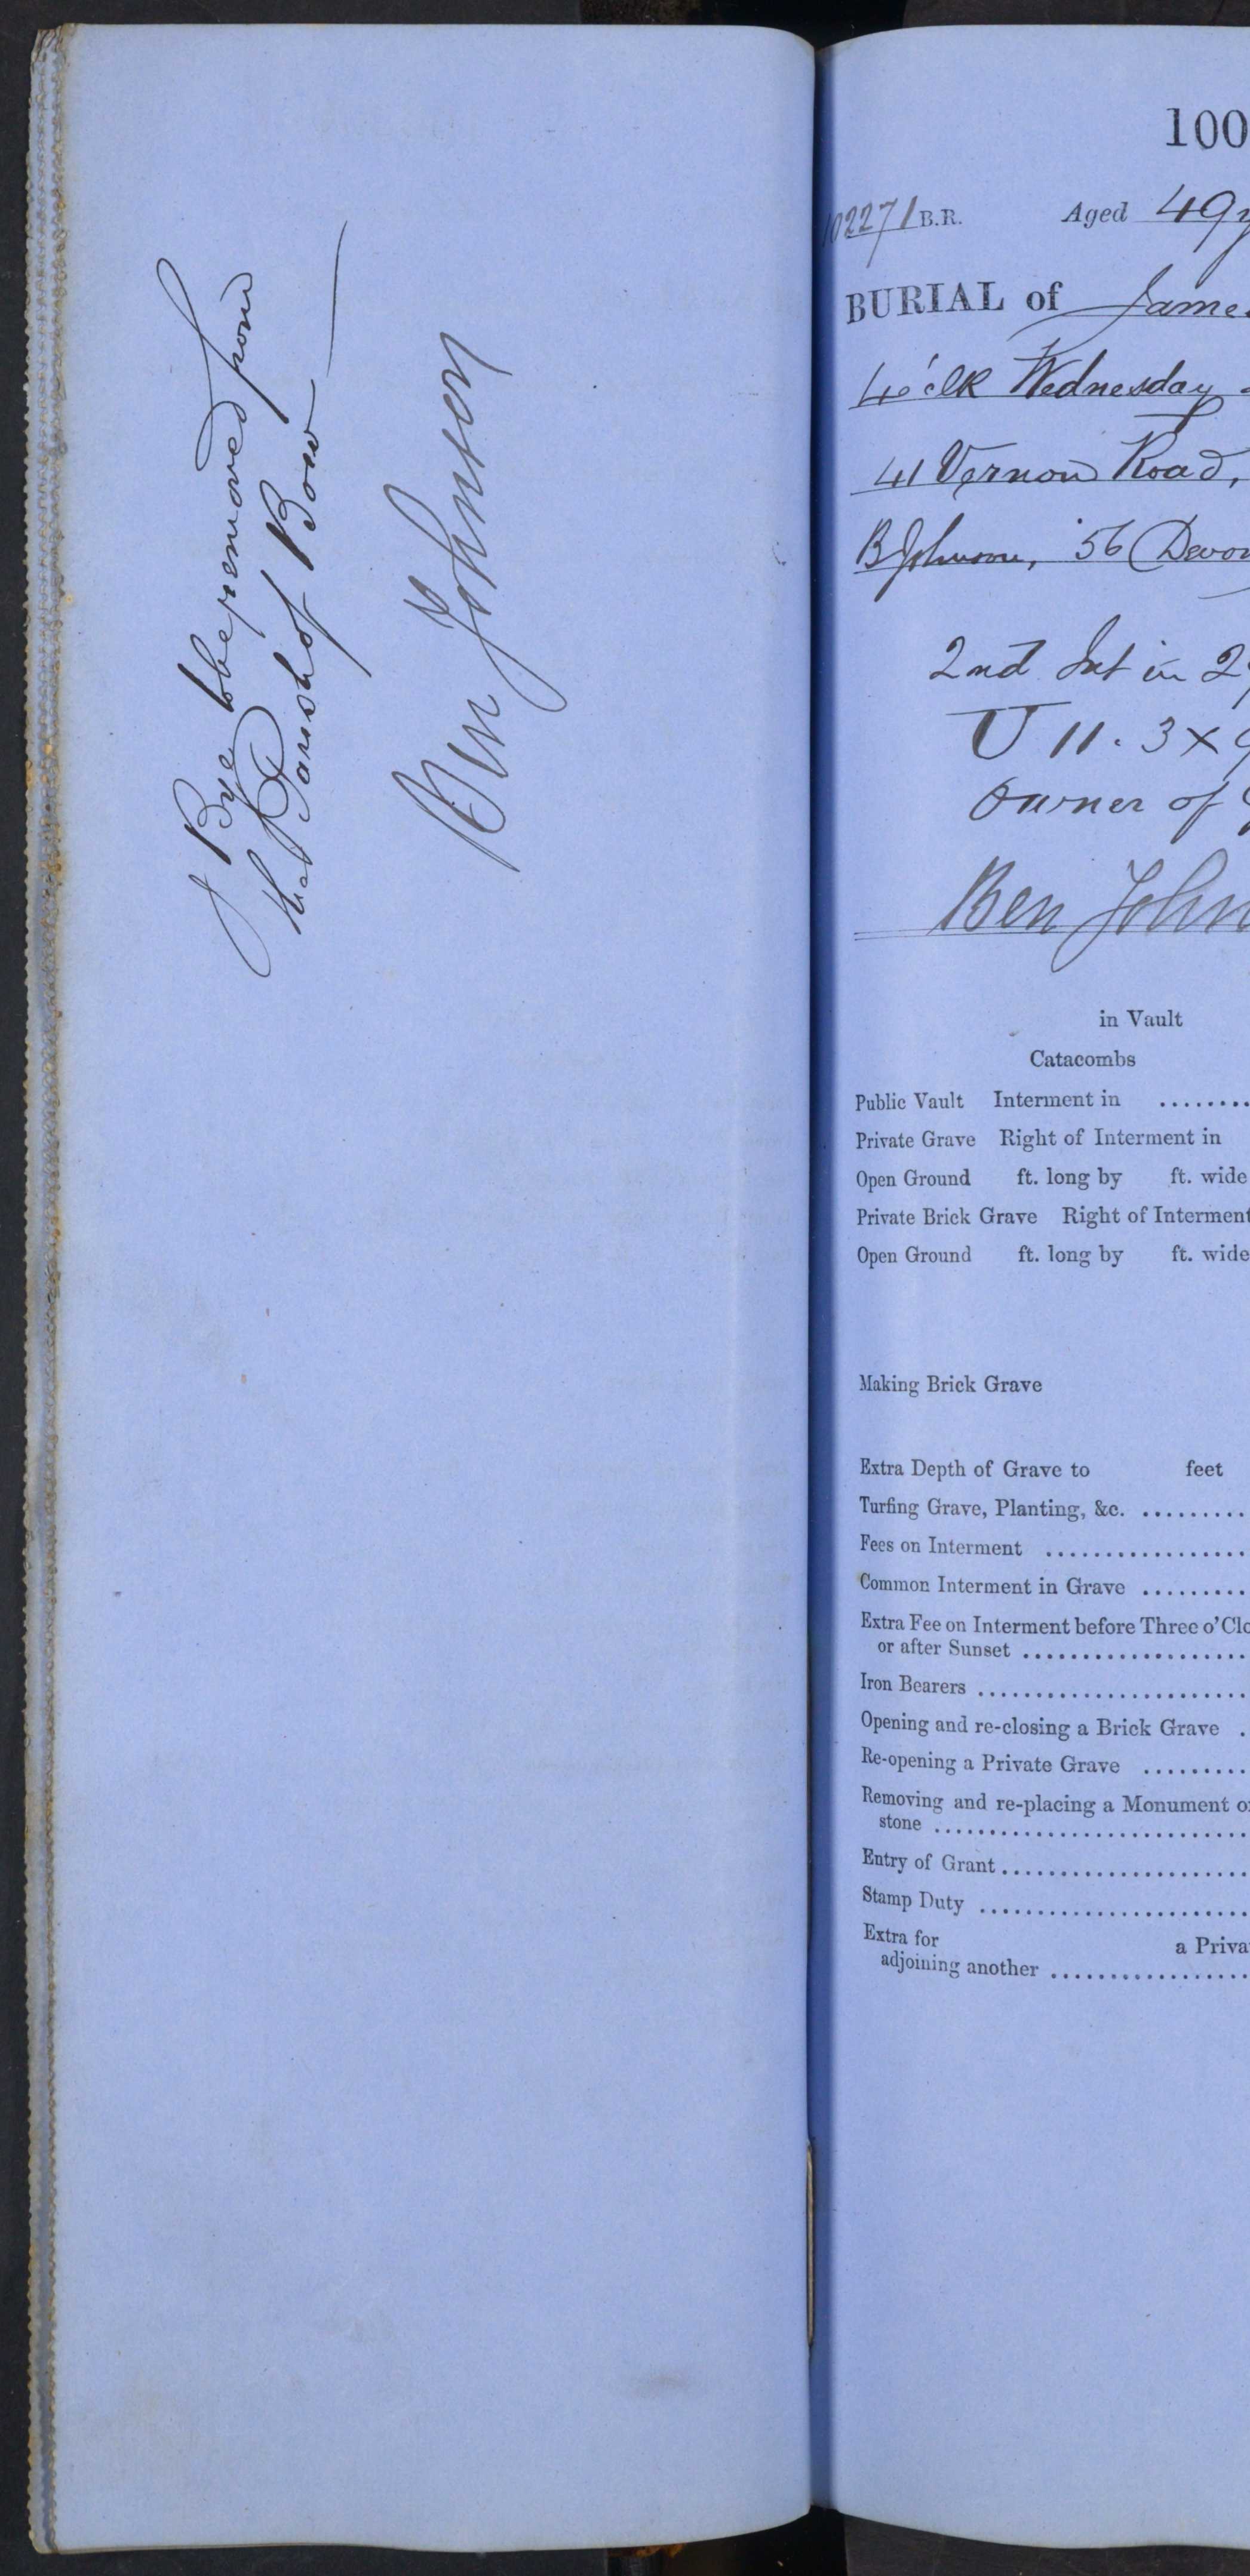 J Bye to be removed from
the Parish of Bow
Ben Johnson
100
102271 B.R. Aged 49y
BURIAL of James
4 o'clk Wednesday
41 Vernon Road,
B Johnson, 56 Devon
2nd Int in 2
U 11. 3 x 9
Owner of G
Ben John
in Vault
Catacombs
Public Vault Interment in ........
Private Grave Right of Interment in
Open Ground ft. long by ft. wide
Private Brick Grave Right of Interment
Open Ground ft. long by ft. wide
Making Brick Grave
Extra Depth of Grave to feet
Turfing Grave, Planting, &c. .........
Fees on Interment .................
Common Interment in Grave .........
Extra Fee on Interment before Three o'Clo
or after Sunset ...................
Iron Bearers .......................
Opening and re-closing a Brick Grave .
Re-opening a Private Grave .........
Removing and re-placing a Monument or
stone ...........................
Entry of Grant .....................
Stamp Duty .......................
Extra for a Priva
adjoining another .................